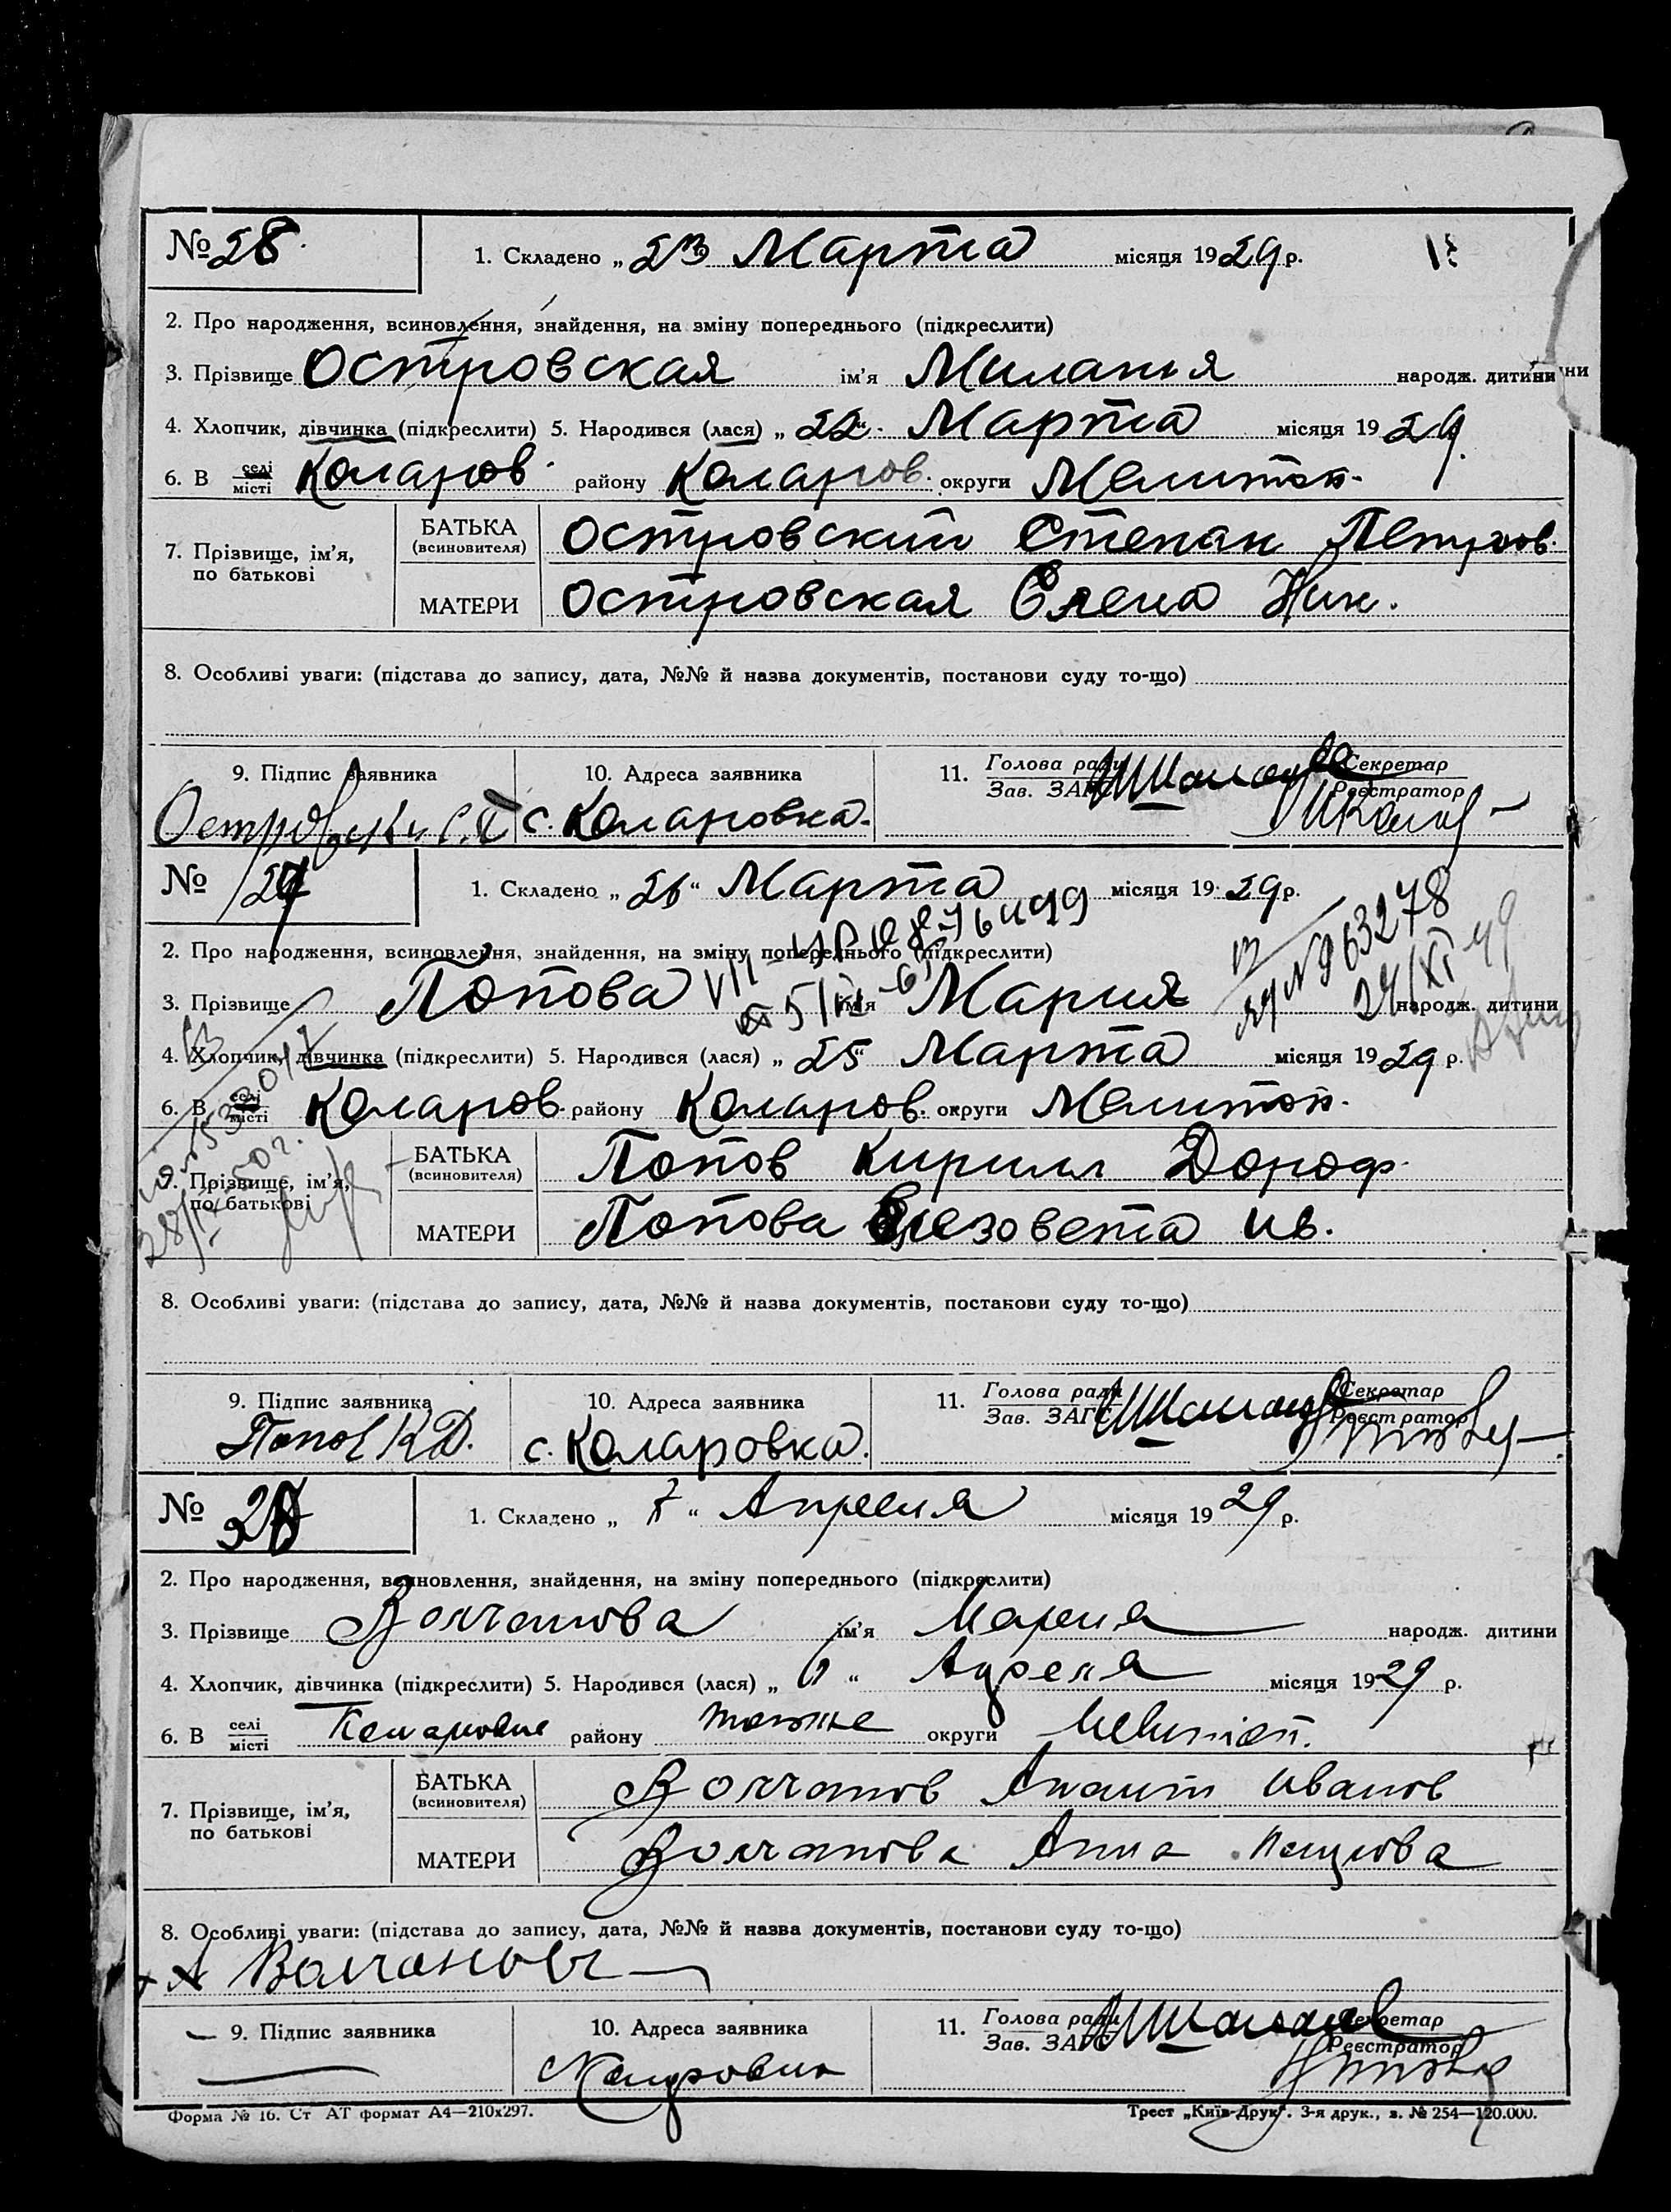 № 28. 1. Складено „ 23 Марта місяця 1929 р.
2. Про народження, всиновлення, знайдення, на зміну попереднього (підкреслити)
3. Прізвище Островская ім'я Миланья народж. дитини
4. Хлопчик, дівчинка (підкреслити) 5. Народився (лася) „ 22 “ Марта місяця 1929.
6. В селі місті Коларов. району Коларов. округи Мелитоп.
7. Прізвище, ім'я, по батькові
БАТЬКА (всиновителя) Островский Степан Петров.
МАТЕРИ Островская Елена Ник.
8. Особливі уваги: (підстава до запису, дата, №№ й назва документів, постанови суду то-що)
9. Підпис заявника 10. Адреса заявника 11. Голова ради Зав. ЗАГС Секретар Реєстратор
с. Коларовка.
№ 1. Складено „ 26 “ Марта місяця 1929 р.
2. Про народження, всиновлення, знайдення, на зміну попереднього (підкреслити)
3. Прізвище Попова ім'я Мария народж. дитини
№ 963278
4. Хлопчик, дівчинка (підкреслити) 5. Народився (лася) „ 25 “ Марта місяця 1929 р.
6. В селі місті Коларов. району Коларов. округи Мелитоп.
7. Прізвище, ім'я, по батькові
БАТЬКА (всиновителя) Попов Кирилл Дороф.
МАТЕРИ Попова Елезовета Ив.
8. Особливі уваги: (підстава до запису, дата, №№ й назва документів, постанови суду то-що)
9. Підпис заявника 10. Адреса заявника 11. Голова ради Зав. ЗАГС Секретар Реєстратор
Попов К Д. с. Коларовка.
№ 1. Складено „ “ Апреля місяця 1929 р.
2. Про народження, всиновлення, знайдення, на зміну попереднього (підкреслити)
3. Прізвище Волчанова ім'я Мария народж. дитини
4. Хлопчик, дівчинка (підкреслити) 5. Народився (лася) „ “ Апреля місяця 1929 р.
6. В селі місті району округи Мелитоп.
7. Прізвище, ім'я, по батькові
БАТЬКА (всиновителя) Волчанов Иванов
МАТЕРИ Волчанова Анна
8. Особливі уваги: (підстава до запису, дата, №№ й назва документів, постанови суду то-що)
9. Підпис заявника 10. Адреса заявника 11. Голова ради Зав. ЗАГС Секретар Реєстратор
Форма № 16. Ст АТ формат А4—210х297. Трест „Київ-Друк“. 3-я друк., з. № 254—120.000.